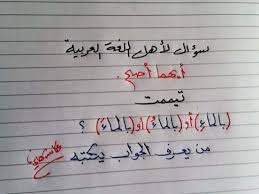 سؤال لأهل اللغة العربية
أيهما أصح.
تيممت
(بالماء) أو (بالماء) أو (بالماء) ؟
من يعرف الجواب يكتبه